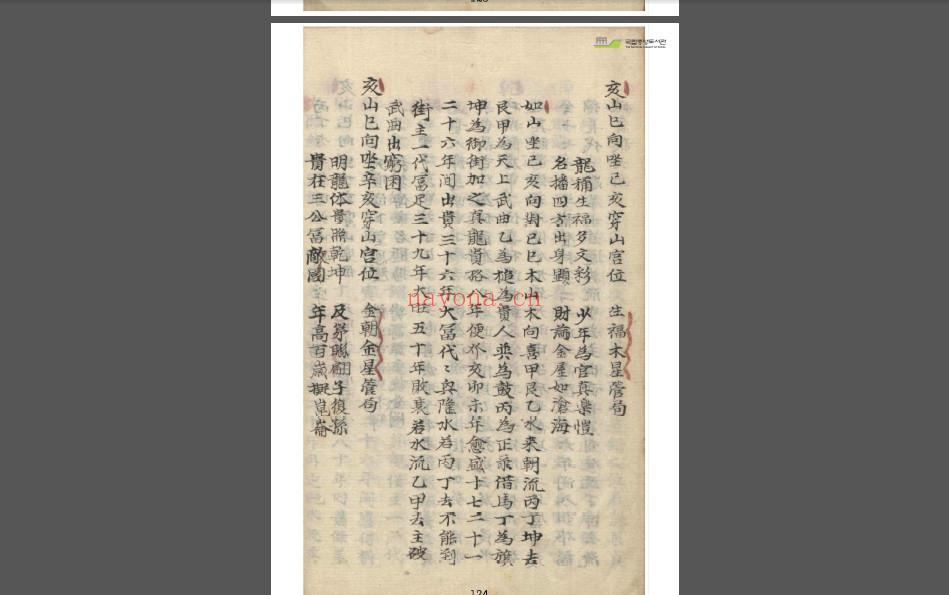 亥山巳向坐己亥穿山宫位 生福木星管局
龍補生福多文彩 少年為官真樂愷
名播四方出身顯 財論金屋如滄海
如山坐己亥向對己巳木山木向喜甲艮乙水来朝流丙丁坤去
艮甲為天上武曲乙為 為貴人巽為鼓丙為正 借馬丁為旗
坤為御街加之真龍貴格八年便 亥卯未年愈盛十七二十一
二十六年间出貴三十六年大富代々興隆水若丙丁去不能到
街主一代富足三十九年大 五十年敗衰若水流乙甲去主破
武曲出窮困
亥山巳向坐辛亥穿山宫位 金朝金星管局
明龍体貴 乾坤 及 子復孫
貴在三公富敵國 年高百歲擬崑崙
nayona.cn
국립중앙도서관
124